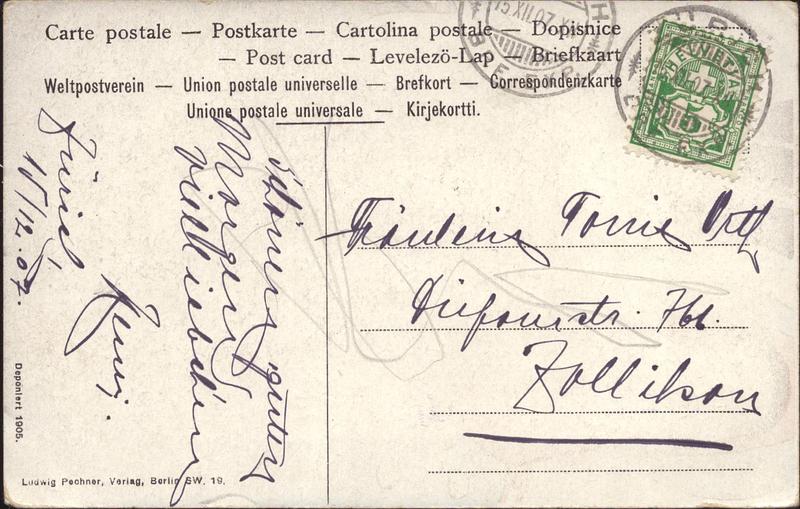 Carte postale — Postkarte — Cartolina postale — Dopisnice
— Post card — Levelezö-Lap — Briefkaart
Weltpostverein — Union postale universelle — Brefkort — Correspondenzkarte
Unione postale universale — Kirjekortti.
HELVETIA
5
Zürich
15/12.07.
Schönen guten
Morgen
Vielliebchen
Fräulein
Zollikon
Deponiert 1905.
Ludwig Pechner, Verlag, Berlin SW. 19.